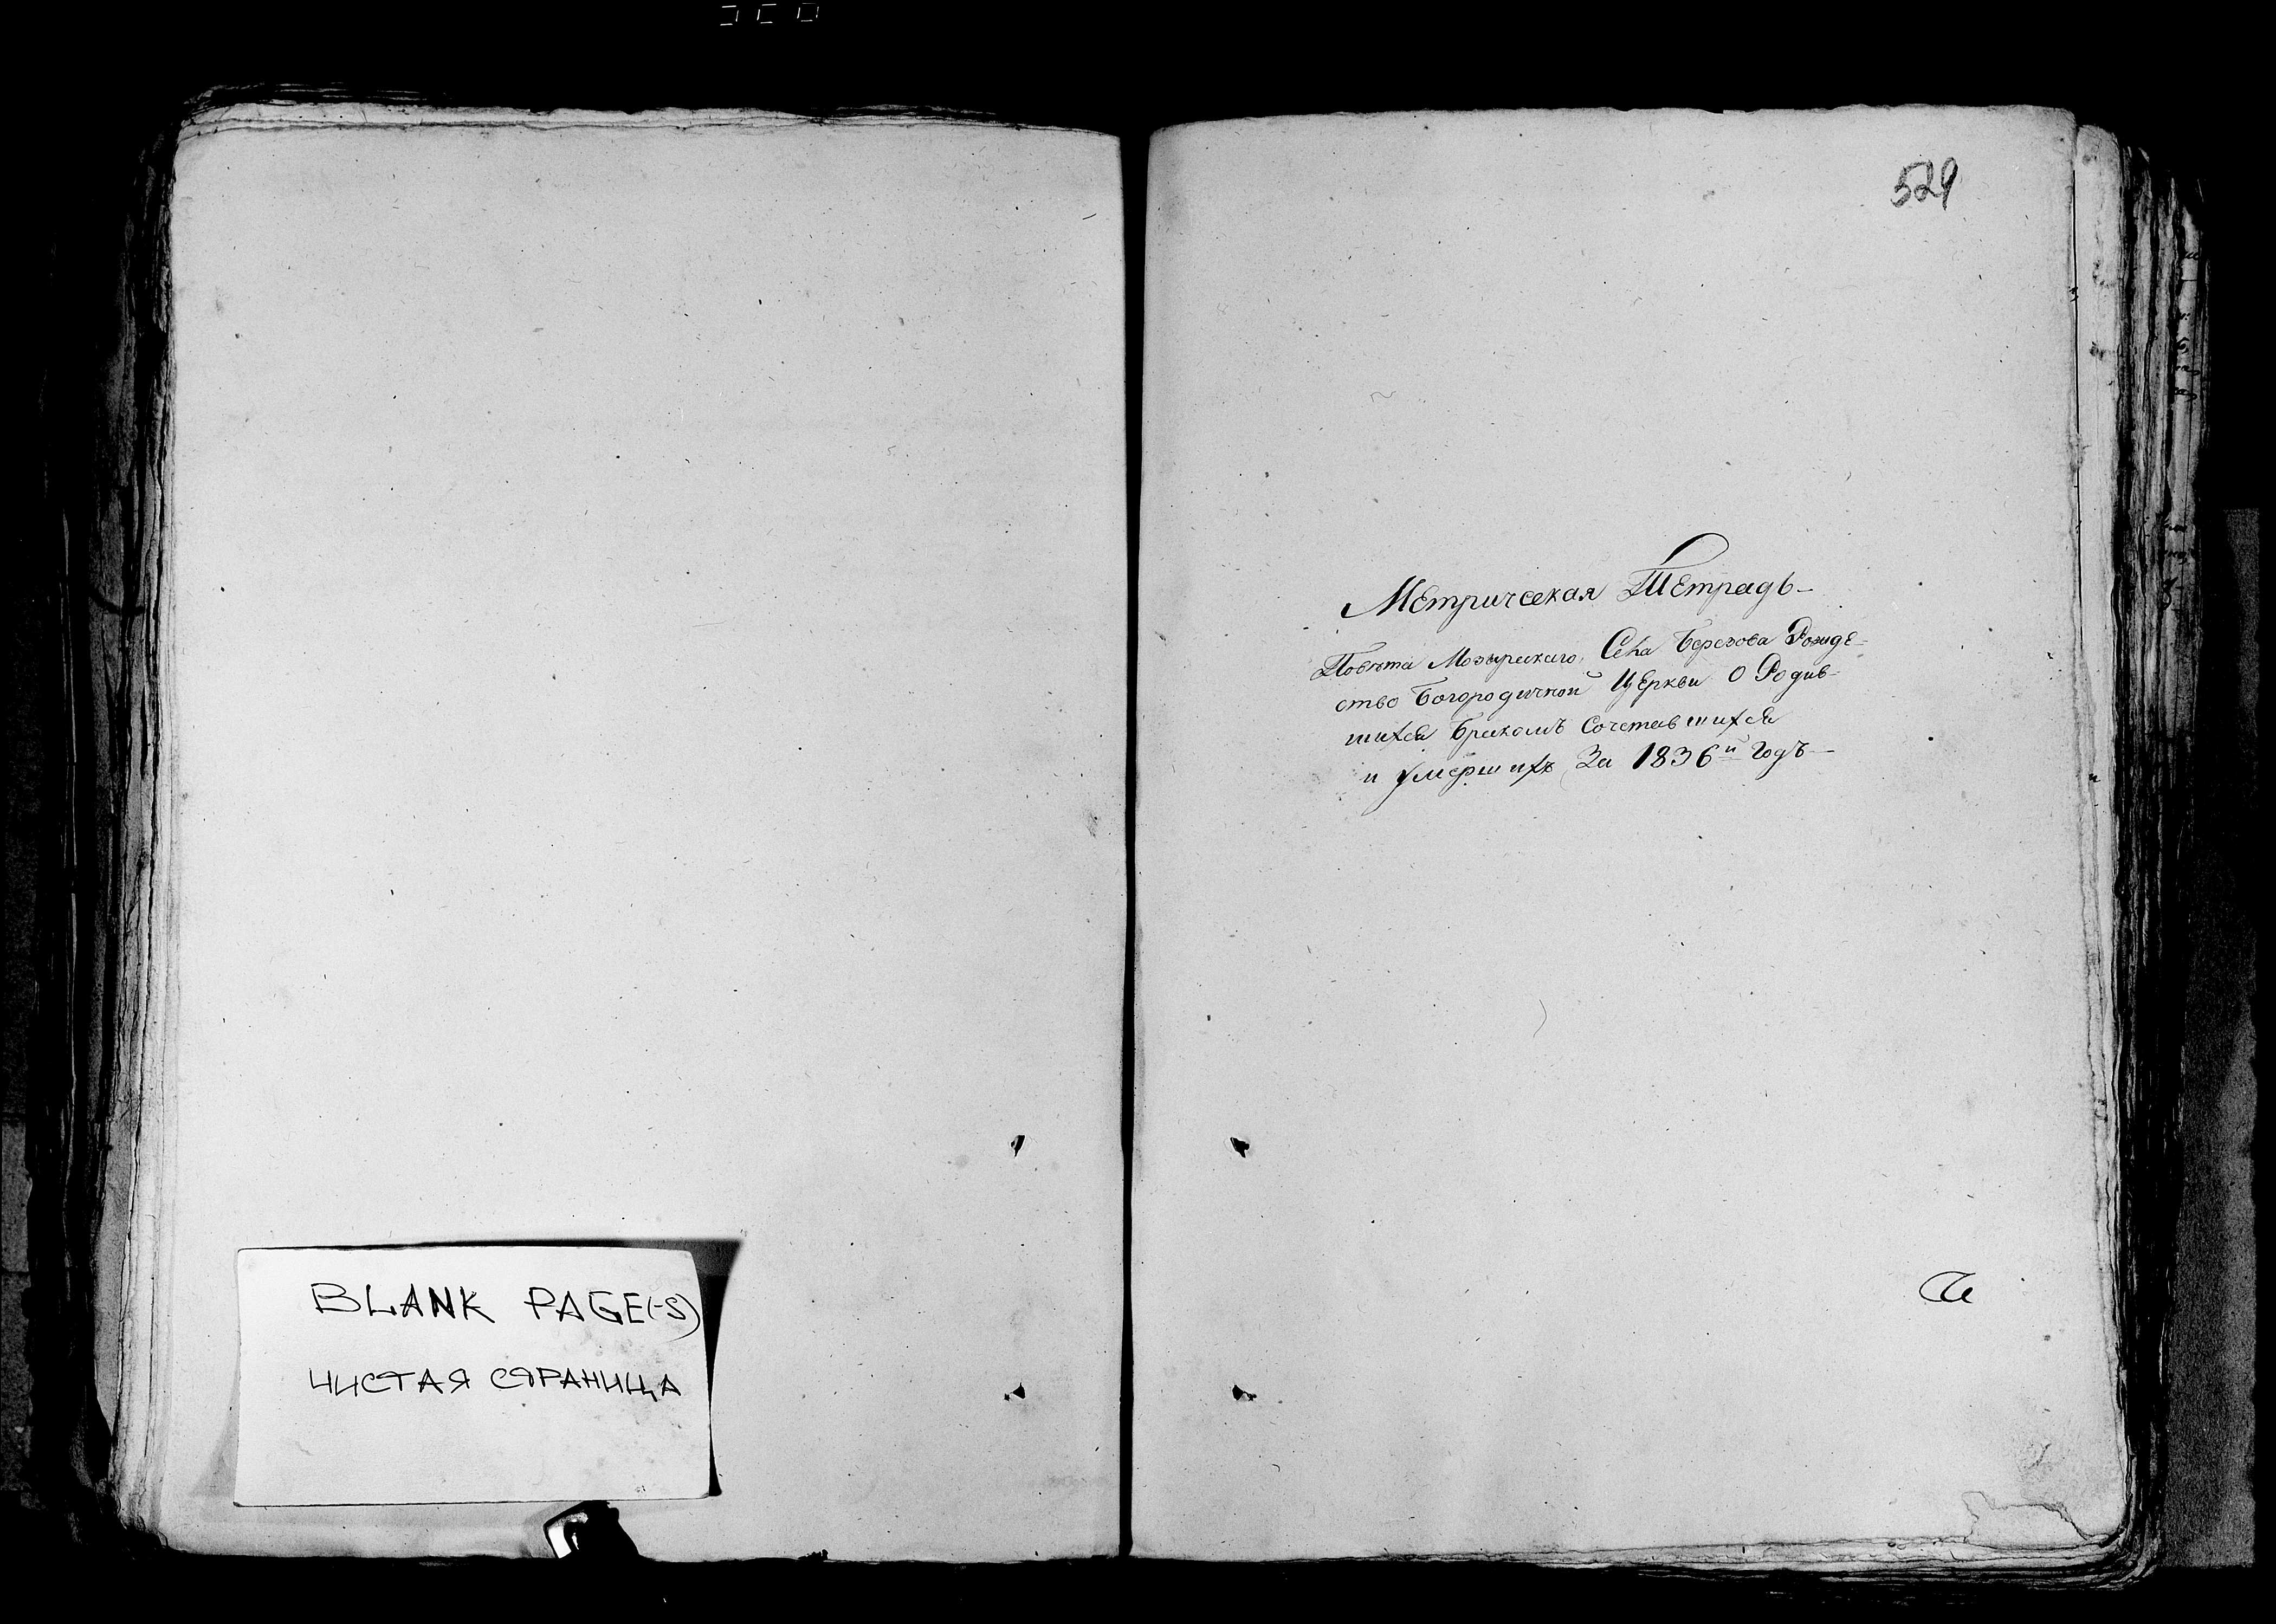 BLANK PAGE(-S)
ЧИСТАЯ СТРАНИЦА
529
Метрическая Тетрадь–
Повѣта Мозырскаго, Села Березова Рожде-
ство Богородичной Церкви О Родив-
шихся Бракомъ Сочетавшихся
и умершихъ За 1836й Годъ—